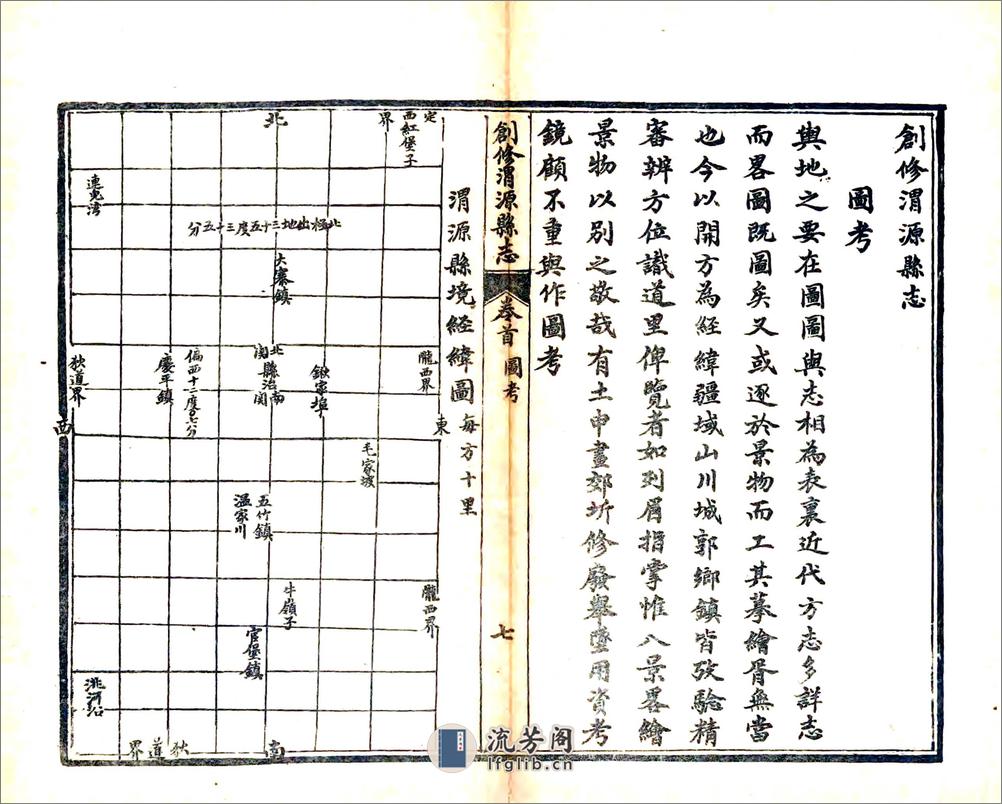 創修渭源縣志
圖考
輿地之要在圖圖與志相為表裏近代方志多詳志
而畧圖既圖矣又或逐於景物而工其摹繪胥無當
也今以開方為經緯疆域山川城郭鄉鎮皆攷驗精
審辨方位識道里俾覽者如列眉指掌惟八景畧繪
景物以別之敬哉有土申畫郊圻修廢舉墜用資考
鏡顧不重與作圖考
創修渭源縣志
卷首
圖考
七
渭源縣境經緯圖
每方十里
北
東
南
西
定西界
紅堡子
連兒灣
北極出地三十五度三十五分
大寨鎮
隴西界
鍬寧埠
北關
縣治
南關
偏西十二度〇七分
慶平鎮
狄道界
毛家坡
五竹鎮
溫家川
隴西界
牛嶺子
官堡鎮
洮河沿
狄道界
流芳阁
lfglib.cn